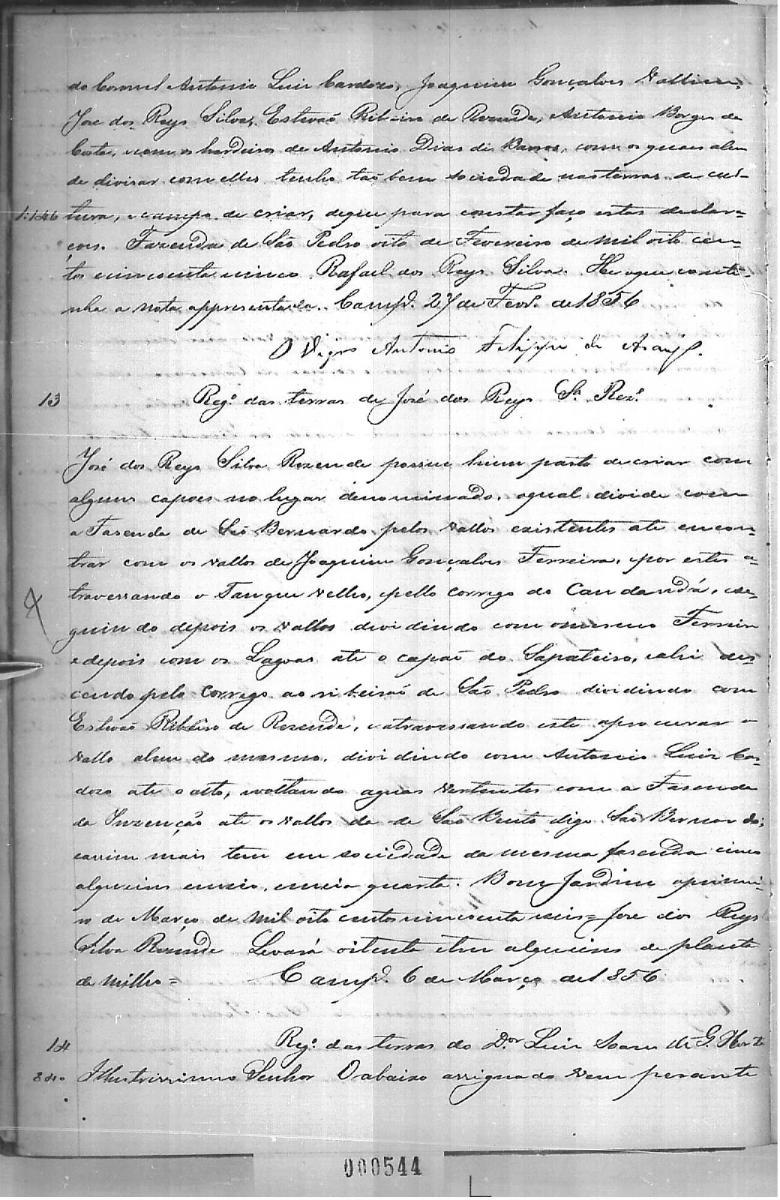 do Coronel Antonio Luis Cardozo, Joaquim Gonçalves Vallim,
José dos Reys Silva, Estevaõ Ribeiro de Rezende, Antonio Borges da
Costa, e com os herdeiros de Antonio Dias de Barros, com os quaes alem
de divisar com elles tenho taõ bem sociedade nas terras de cul-
1:146 tura, e campo de criar, e que para constar faço estas declar-
çoes. Fazenda de Saõ Pedro oito de Fevereiro de mil oito cen-
tos cincoenta e cinco Rafael dos Reys Silva. He o que conti-
nha a nota appresentada. Camp.ª 27 de Fevr.º de 1856
O Vigr.º Antonio Felippe de Araujo.
13 Reg.º das terras de José dos Reys S.ª Rez.e
José dos Reys Silva Rezende possue hum pasto de criar com
alguns capoes no lugar denominado, o qual divide com
a Fazenda de Saõ Bernardo pelos vallos existentes ate encon-
trar com os vallos de Joaquim Gonçalves Ferreira, e por estes a-
travessando o Tanque velho, e pello corrego do Candandá, e se-
guindo depois os vallos dividindo com o mesmo Ferreira
e depois com os Lagoas ate o capaõ do Sapateiro, e ahi des-
cendo pelo corrego ao ribeiraõ de Saõ Pedro dividindo com
Estevaõ Ribeiro de Rezende, e atravessando este a procurar o
vallo alem do mesmo, dividindo com Antonio Luis Car-
dozo ate o alto, e voltando aguas vertentes com a Fazenda
da Inzenção até os vallos da de Saõ Bento digo Saõ Bernardo;
e assim mais tem em sociedade da mesma fazenda cinco
alqueires e meio, e meia quarta. Bom Jardim a primei-
ro de Março de mil oito centos cincoenta e seis = José dos Reys
Silva Rezende Levará oitenta e tres alqueires de planta
de milho = Camp.ª 6 de Março de 1856.
14 Reg.º das terras do D.or Luis Soares de G. Horta
Illustrissimo Senhor O abaixo assignado vem perante
000544